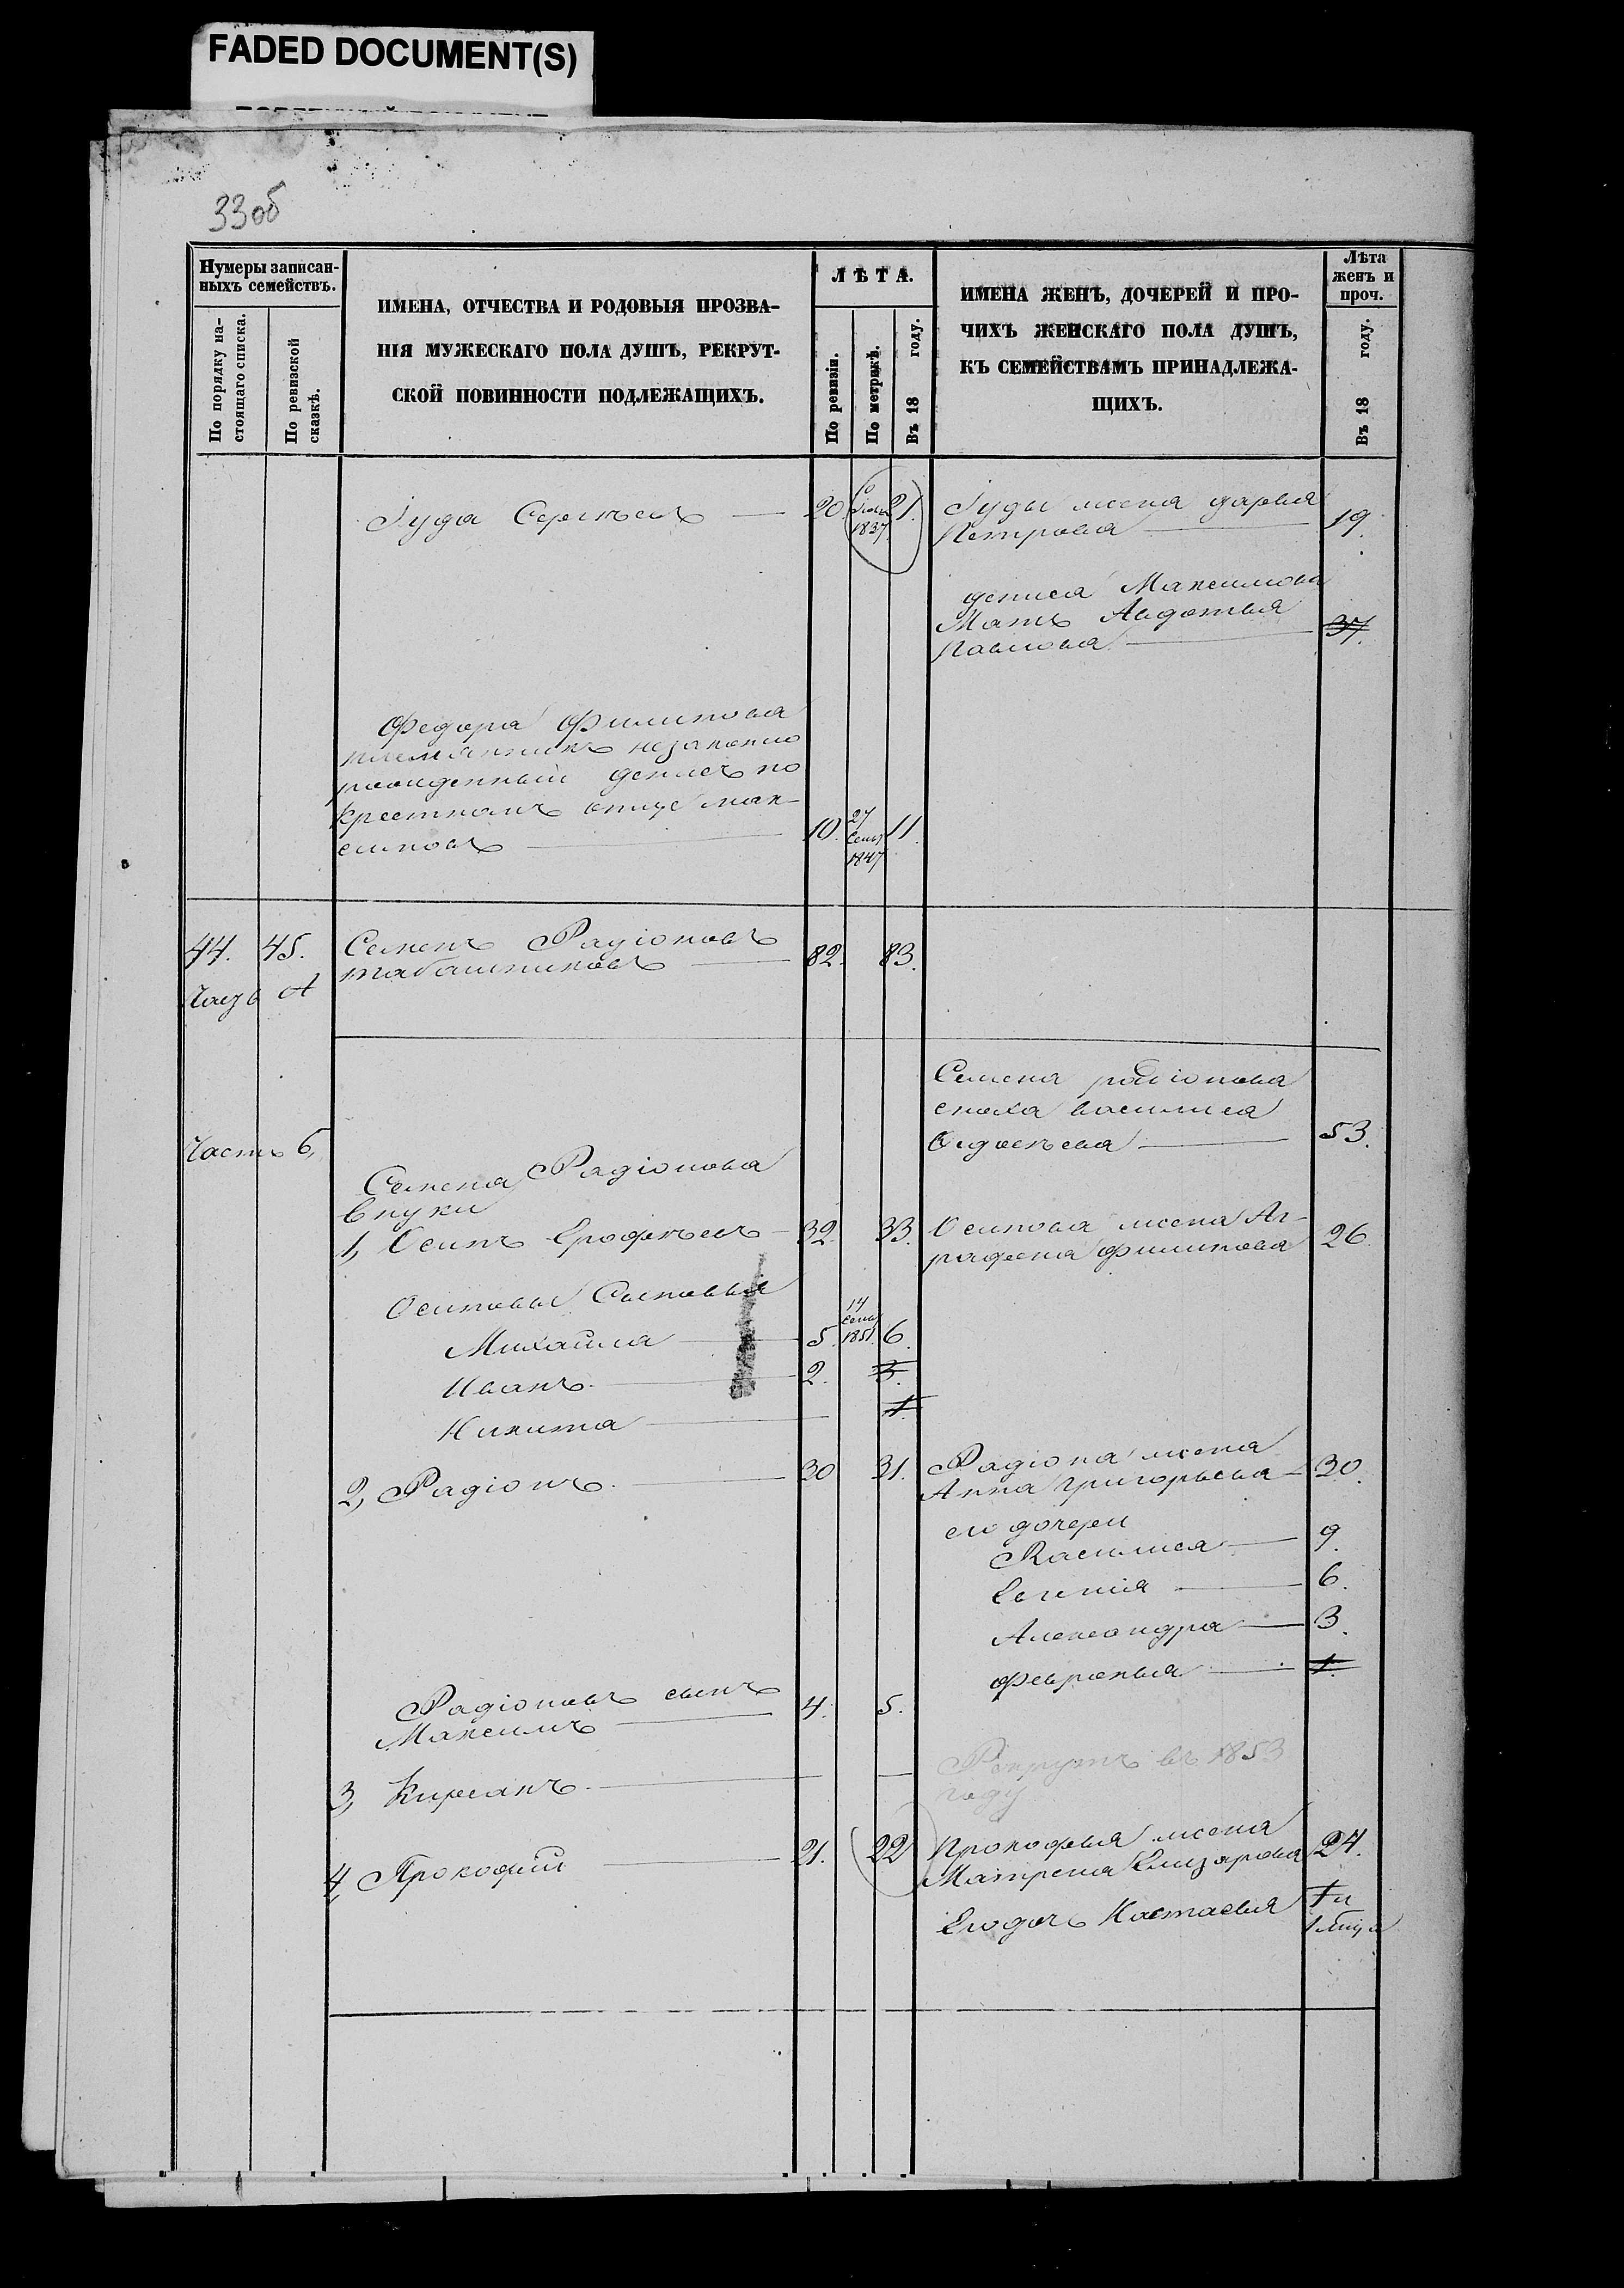 FADED DOCUMENT(S)
33об
Нумеры записан-
ныхъ семействъ.
По порядку на-
стоящаго списка.
По ревизской
сказкѣ.
ИМЕНА, ОТЧЕСТВА И РОДОВЫЯ ПРОЗВА-
НІЯ МУЖЕСКАГО ПОЛА ДУШЪ, РЕКРУТ-
СКОЙ ПОВИННОСТИ ПОДЛЕЖАЩИХЪ.
ЛѢТА.
По ревизіи.
По метрикѣ.
Въ 18 году.
ИМЕНА ЖЕНЪ, ДОЧЕРЕЙ И ПРО-
ЧИХЪ ЖЕНСКАГО ПОЛА ДУШЪ,
КЪ СЕМЕЙСТВАМЪ ПРИНАДЛЕЖА-
ЩИХЪ.
Лѣта
женъ и
проч.
Въ 18 году.
Іуда Сергѣевъ 20. 1837 21.
Іуды жена дарья
Петрова 19.
дениса Максимова
Мать Авдотья
Павлова 37.
Федора Филипова
племянникъ незаконно
рожденный денисъ по
крестномъ отцѣ Мак-
симовъ 10. 27 Сент 1847 11.
44. 45. Семенъ Радіоновъ
табашниковъ 82. 83.
Часть А
Семена радіонова
сноха василиса
Авдѣева 53.
Часть б,
Семена Радіонова
внуки
1, Осипъ Ерофѣевъ 32. 33. Осипова жена Аг-
рафена филипова 26.
Осиповы Сыновья
Михайла 5. 14 Сент 1851. 6.
Иванъ 2. 3.
Никита 1.
2, Радіонъ 30 31. Радіона жена
Анна григорьева 30.
его дочери
Василиса 9.
Евгенія 6.
Александра 3.
Февронья 1.
Радіоновъ сынъ
Максимъ 4. 5.
3, Кирсанъ Рекрутъ въ 1853
году
4, Прокофій 21. 22 Прокофья жена
Матрена Елизарова 24.
Его дочь Настасья 1 и
1 мца